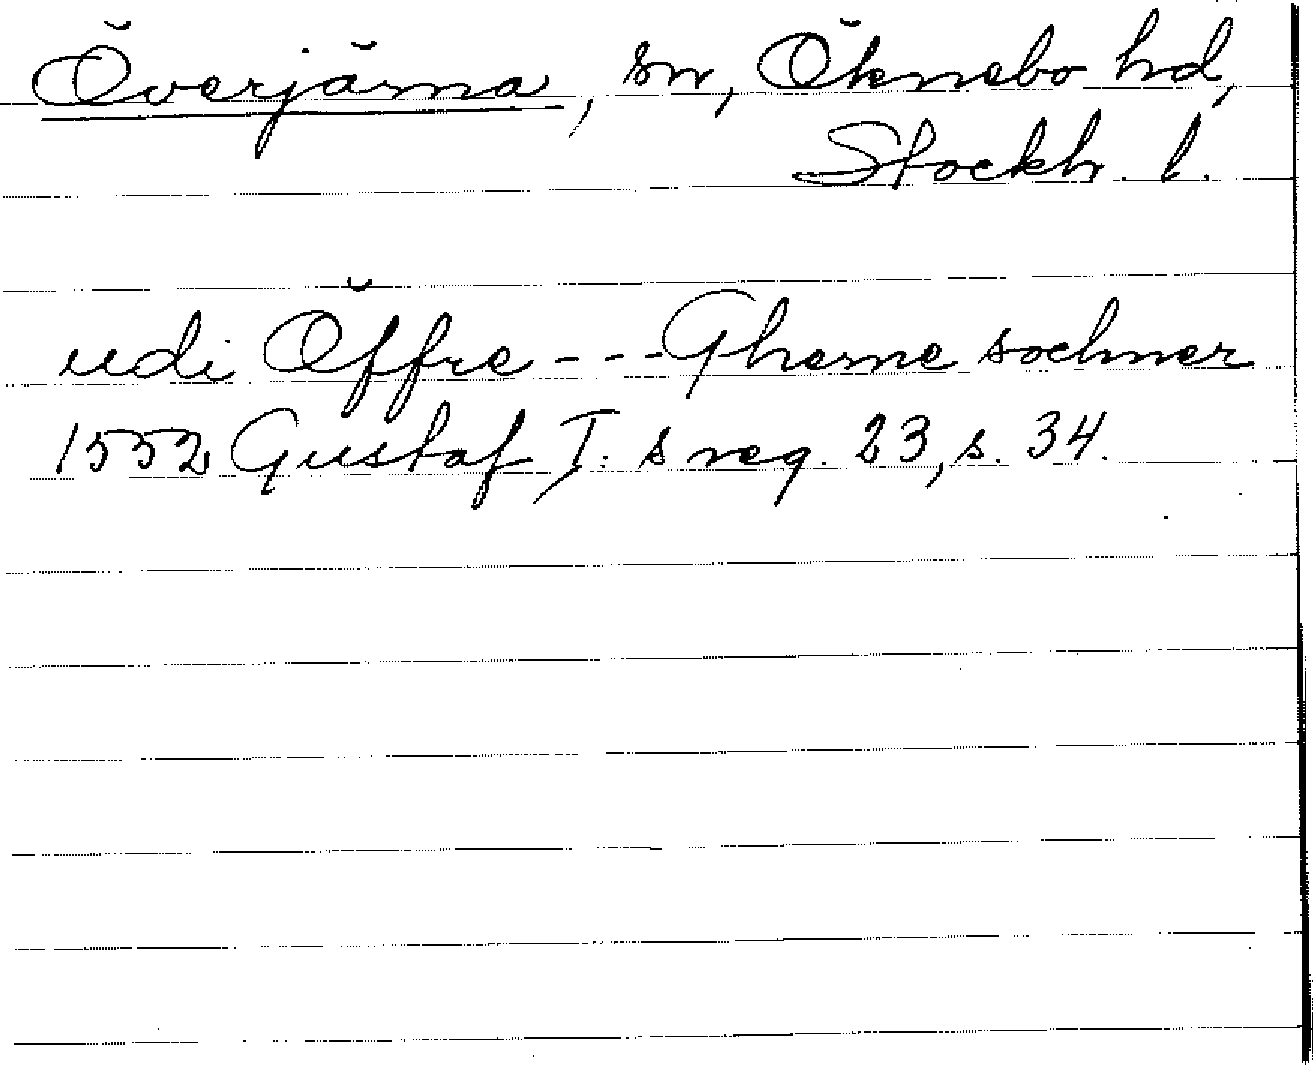 Överjärna, sn, Öknebo hd,
Stockh. l.
udi Öffre - - - Gherne sochner
1552 Gustaf I. s reg. 23, s. 34.